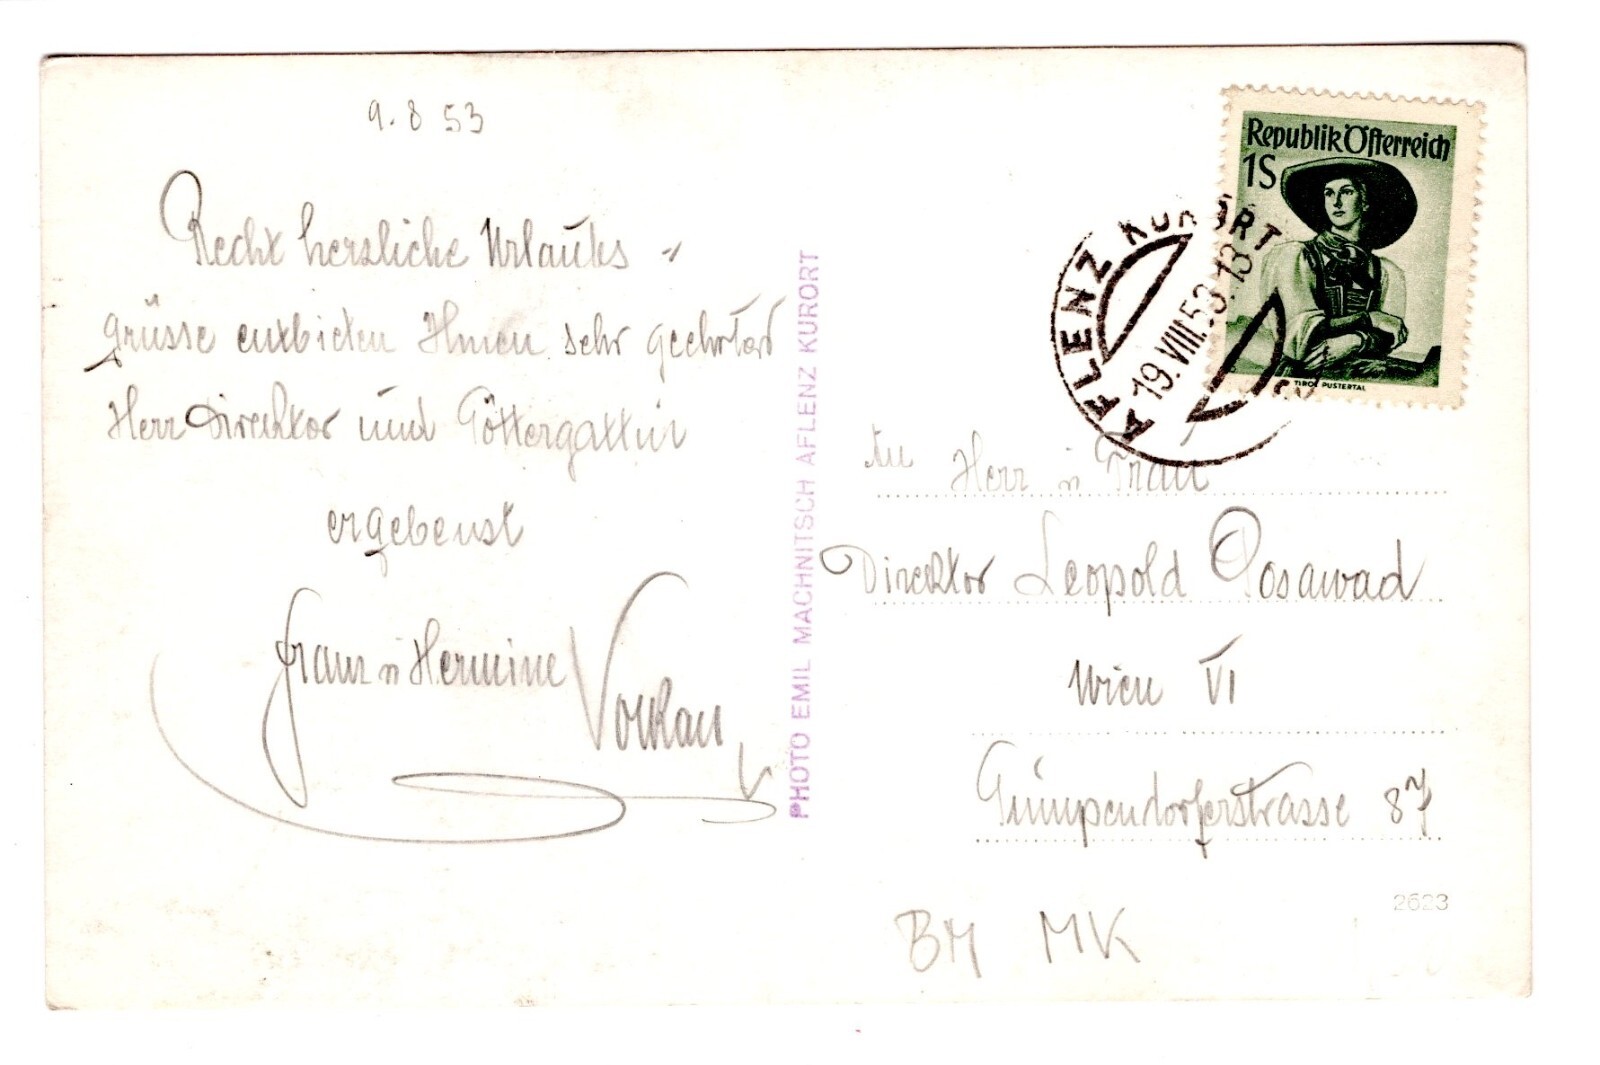 9.8 53
Recht herzliche Urlaubs-
grüsse entbieten Ihnen sehr geehrter
Herr Direktor und Göttergattin
ergebenst
Franz u Hermine
PHOTO EMIL MACHNITSCH AFLENZ KURORT
Republik Österreich
1S
TIROL PUSTERTAL
AFLENZ KURORT
19.VIII.53.13
An Herr u Frau
Direktor Leopold Posawad
Wien VI
Gumpendorferstrasse 87
2623
BM MK